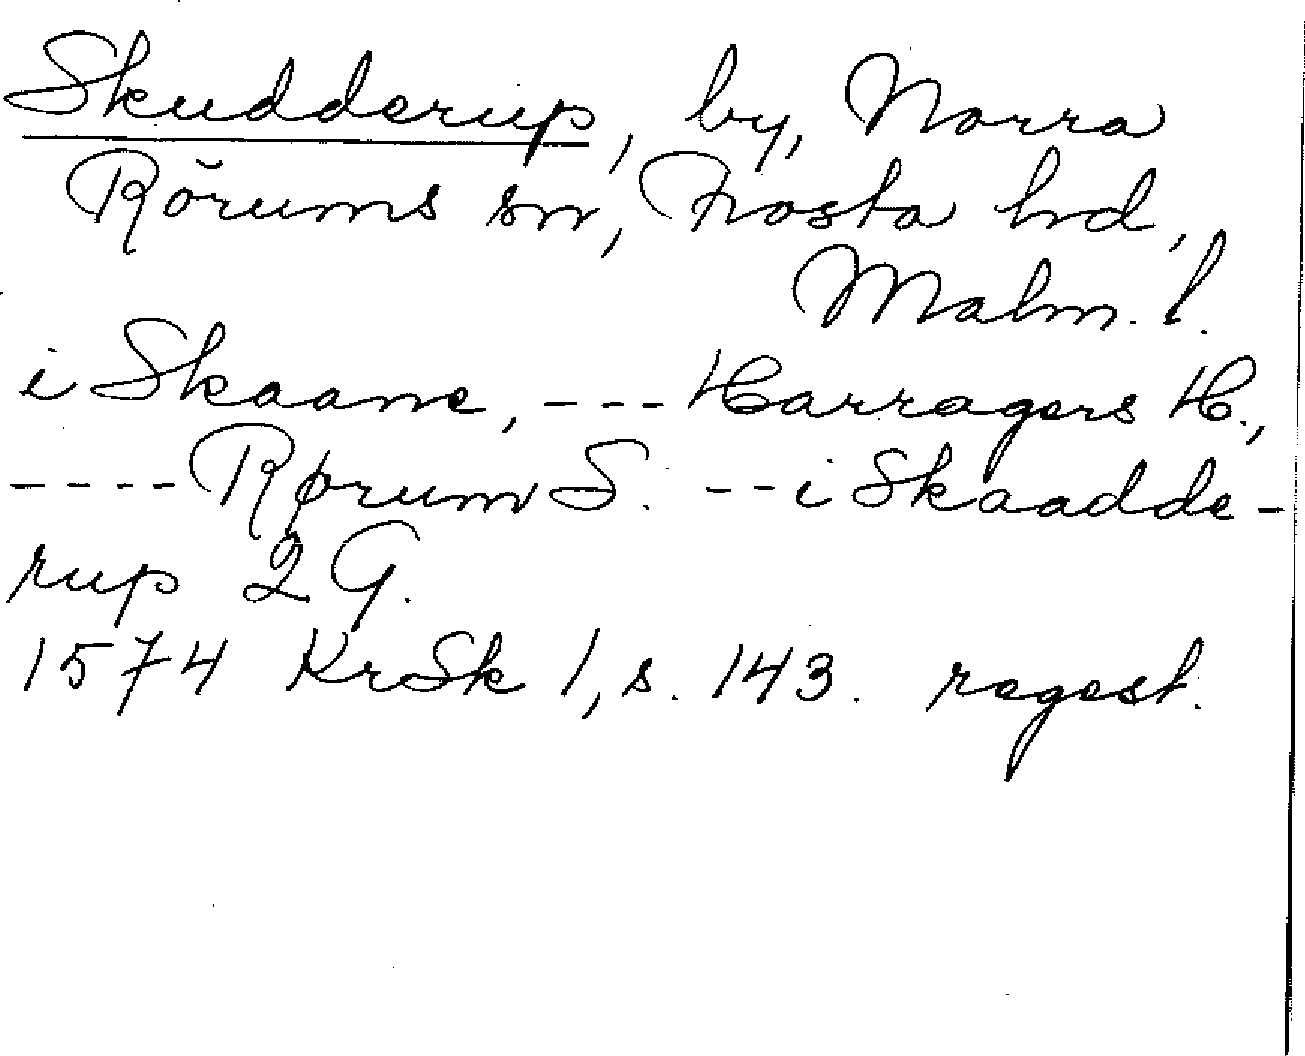 Skudderup, by, Norra
Rörums sn, Frosta hd,
Malm. l.
i Skaane, --- Harragers H.,
---- Rørum S. -- i Skaadde-
rup 2 G.
1574 KrSk 1, s. 143. regest.